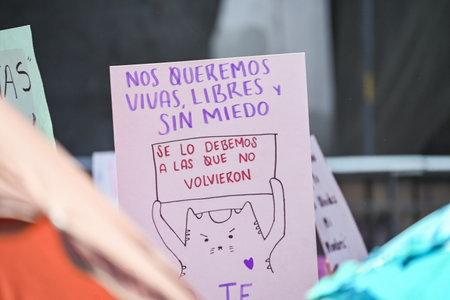 NOS QUEREMOS
VIVAS, LIBRES Y
SIN MIEDO
SE LO DEBEMOS
A LAS QUE NO
VOLVIERON
TE
AS"